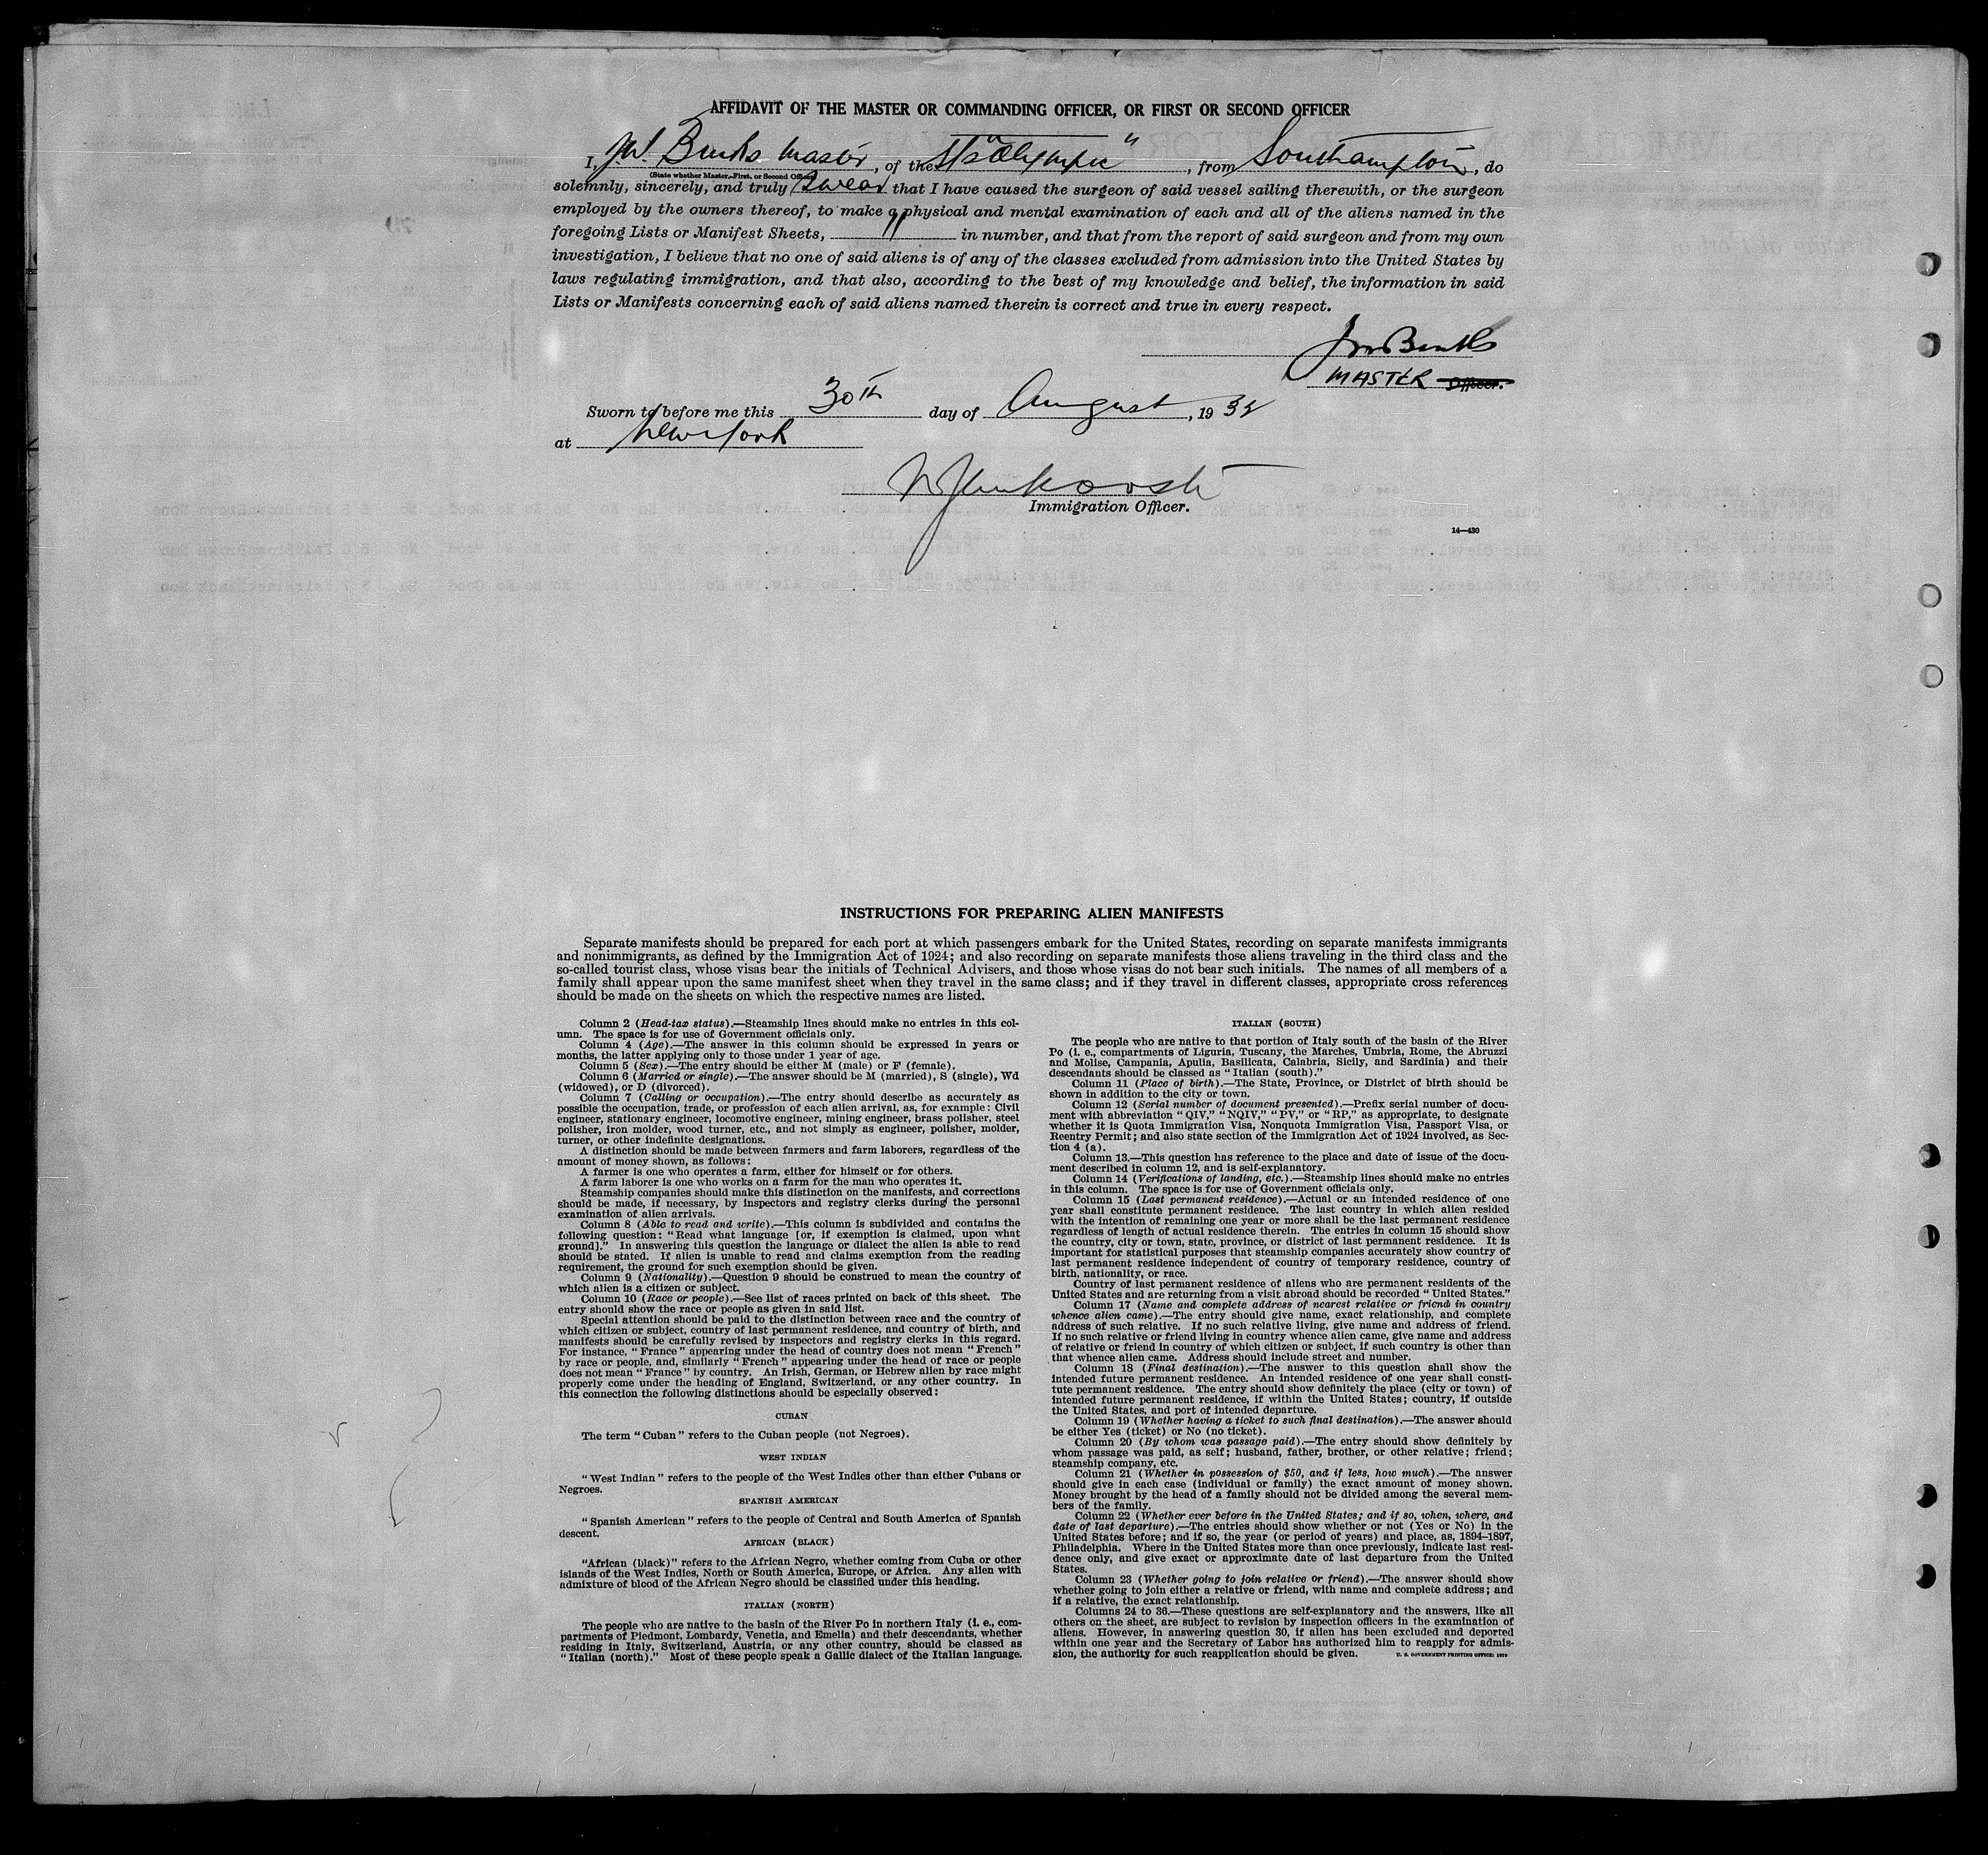 AFFIDAVIT OF THE MASTER OR COMMANDING OFFICER, OR FIRST OR SECOND OFFICER
I, J.W. Binks Master, of the "Olympic", from Southampton, do
(State whether Master, First, or Second Officer)
solemnly, sincerely, and truly swear that I have caused the surgeon of said vessel sailing therewith, or the surgeon
employed by the owners thereof, to make a physical and mental examination of each and all of the aliens named in the
foregoing Lists or Manifest Sheets, in number, and that from the report of said surgeon and from my own
investigation, I believe that no one of said aliens is of any of the classes excluded from admission into the United States by
laws regulating immigration, and that also, according to the best of my knowledge and belief, the information in said
Lists or Manifests concerning each of said aliens named therein is correct and true in every respect.
JW Binks
MASTER Officer.
Sworn to before me this 30th day of August, 1932
at New York
Immigration Officer.
14—430
INSTRUCTIONS FOR PREPARING ALIEN MANIFESTS
Separate manifests should be prepared for each port at which passengers embark for the United States, recording on separate manifests immigrants
and nonimmigrants, as defined by the Immigration Act of 1924; and also recording on separate manifests those aliens traveling in the third class and the
so-called tourist class, whose visas bear the initials of Technical Advisers, and those whose visas do not bear such initials. The names of all members of a
family shall appear upon the same manifest sheet when they travel in the same class; and if they travel in different classes, appropriate cross references
should be made on the sheets on which the respective names are listed.
Column 2 (Head-tax status).—Steamship lines should make no entries in this col-
umn. The space is for use of Government officials only.
Column 4 (Age).—The answer in this column should be expressed in years or
months, the latter applying only to those under 1 year of age.
Column 5 (Sex).—The entry should be either M (male) or F (female).
Column 6 (Married or single).—The answer should be M (married), S (single), Wd
(widowed), or D (divorced).
Column 7 (Calling or occupation).—The entry should describe as accurately as
possible the occupation, trade, or profession of each alien arrival, as, for example: Civil
engineer, stationary engineer, locomotive engineer, mining engineer, brass polisher, steel
polisher, iron molder, wood turner, etc., and not simply as engineer, polisher, molder,
turner, or other indefinite designations.
A distinction should be made between farmers and farm laborers, regardless of the
amount of money shown, as follows:
A farmer is one who operates a farm, either for himself or for others.
A farm laborer is one who works on a farm for the man who operates it.
Steamship companies should make this distinction on the manifests, and corrections
should be made, if necessary, by inspectors and registry clerks during the personal
examination of alien arrivals.
Column 8 (Able to read and write).—This column is subdivided and contains the
following question: "Read what language [or, if exemption is claimed, upon what
ground]." In answering this question the language or dialect the alien is able to read
should be stated. If alien is unable to read and claims exemption from the reading
requirement, the ground for such exemption should be given.
Column 9 (Nationality).—Question 9 should be construed to mean the country of
which alien is a citizen or subject.
Column 10 (Race or people).—See list of races printed on back of this sheet. The
entry should show the race or people as given in said list.
Special attention should be paid to the distinction between race and the country of
which citizen or subject, country of last permanent residence, and country of birth, and
manifests should be carefully revised by inspectors and registry clerks in this regard.
For instance, "France" appearing under the head of country does not mean "French"
by race or people, and, similarly "French" appearing under the head of race or people
does not mean "France" by country. An Irish, German, or Hebrew alien by race might
properly come under the heading of England, Switzerland, or any other country. In
this connection the following distinctions should be especially observed:
CUBAN
The term "Cuban" refers to the Cuban people (not Negroes).
WEST INDIAN
"West Indian" refers to the people of the West Indies other than either Cubans or
Negroes.
SPANISH AMERICAN
"Spanish American" refers to the people of Central and South America of Spanish
descent.
AFRICAN (BLACK)
"African (black)" refers to the African Negro, whether coming from Cuba or other
islands of the West Indies, North or South America, Europe, or Africa. Any alien with
admixture of blood of the African Negro should be classified under this heading.
ITALIAN (NORTH)
The people who are native to the basin of the River Po in northern Italy (i. e., com-
partments of Piedmont, Lombardy, Venetia, and Emelia) and their descendants, whether
residing in Italy, Switzerland, Austria, or any other country, should be classed as
"Italian (north)." Most of these people speak a Gallic dialect of the Italian language.
ITALIAN (SOUTH)
The people who are native to that portion of Italy south of the basin of the River
Po (i. e., compartments of Liguria, Tuscany, the Marches, Umbria, Rome, the Abruzzi
and Molise, Campania, Apulia, Basilicata, Calabria, Sicily, and Sardinia) and their
descendants should be classed as "Italian (south)."
Column 11 (Place of birth).—The State, Province, or District of birth should be
shown in addition to the city or town.
Column 12 (Serial number of document presented).—Prefix serial number of docu-
ment with abbreviation "QIV," "NQIV," "PV," or "RP," as appropriate, to designate
whether it is Quota Immigration Visa, Nonquota Immigration Visa, Passport Visa, or
Reentry Permit; and also state section of the Immigration Act of 1924 involved, as Sec-
tion 4 (a).
Column 13.—This question has reference to the place and date of issue of the docu-
ment described in column 12, and is self-explanatory.
Column 14 (Verifications of landing, etc.).—Steamship lines should make no entries
in this column. The space is for use of Government officials only.
Column 15 (Last permanent residence).—Actual or an intended residence of one
year shall constitute permanent residence. The last country in which alien resided
with the intention of remaining one year or more shall be the last permanent residence
regardless of length of actual residence therein. The entries in column 15 should show
the country, city or town, state, province, or district of last permanent residence. It is
important for statistical purposes that steamship companies accurately show country of
last permanent residence independent of country of temporary residence, country of
birth, nationality, or race.
Country of last permanent residence of aliens who are permanent residents of the
United States and are returning from a visit abroad should be recorded "United States."
Column 17 (Name and complete address of nearest relative or friend in country
whence alien came).—The entry should give name, exact relationship, and complete
address of such relative. If no such relative living, give name and address of friend.
If no such relative or friend living in country whence alien came, give name and address
of relative or friend in country of which citizen or subject, if such country is other than
that whence alien came. Address should include street and number.
Column 18 (Final destination).—The answer to this question shall show the
intended future permanent residence. An intended residence of one year shall consti-
tute permanent residence. The entry should show definitely the place (city or town) of
intended future permanent residence, if within the United States; country, if outside
the United States, and port of intended departure.
Column 19 (Whether having a ticket to such final destination).—The answer should
be either Yes (ticket) or No (no ticket).
Column 20 (By whom was passage paid).—The entry should show definitely by
whom passage was paid, as self; husband, father, brother, or other relative; friend;
steamship company, etc.
Column 21 (Whether in possession of $50, and if less, how much).—The answer
should give in each case (individual or family) the exact amount of money shown.
Money brought by the head of a family should not be divided among the several mem-
bers of the family.
Column 22 (Whether ever before in the United States; and if so, when, where, and
date of last departure).—The entries should show whether or not (Yes or No) in the
United States before; and if so, the year (or period of years) and place, as, 1894–1897,
Philadelphia. Where in the United States more than once previously, indicate last resi-
dence only, and give exact or approximate date of last departure from the United
States.
Column 23 (Whether going to join relative or friend).—The answer should show
whether going to join either a relative or friend, with name and complete address; and
if a relative, the exact relationship.
Columns 24 to 36.—These questions are self-explanatory and the answers, like all
others on the sheet, are subject to revision by inspection officers in the examination of
aliens. However, in answering question 30, if alien has been excluded and deported
within one year and the Secretary of Labor has authorized him to reapply for admis-
sion, the authority for such reapplication should be given. U. S. GOVERNMENT PRINTING OFFICE: